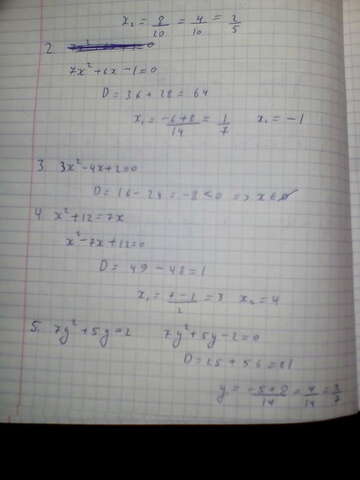 x₂ = 8/20 = 4/10 = 2/5
2.
7x² + 6x - 1 = 0
D = 36 + 28 = 64
x₁ = (-6+8)/14 = 1/7 x₁ = -1
3. 3x² - 4x + 2 = 0
D = 16 - 24 = -8 < 0 => x ∈ ∅
4. x² + 12 = 7x
x² - 7x + 12 = 0
D = 49 - 48 = 1
x₁ = (7-1)/2 = 3 x₂ = 4
5. 7y² + 5y = 2 7y² + 5y - 2 = 0
D = 25 + 56 = 81